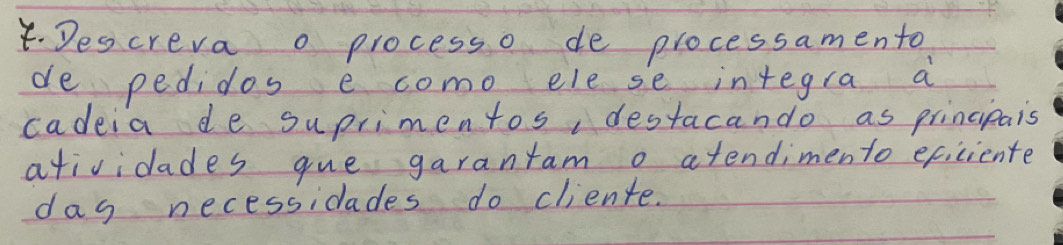 7. Descreva o processo de processamento
de pedidos e como ele se integra à
cadeia de suprimentos, destacando as principais
atividades que garantam o atendimento eficiente
das necessidades do cliente.